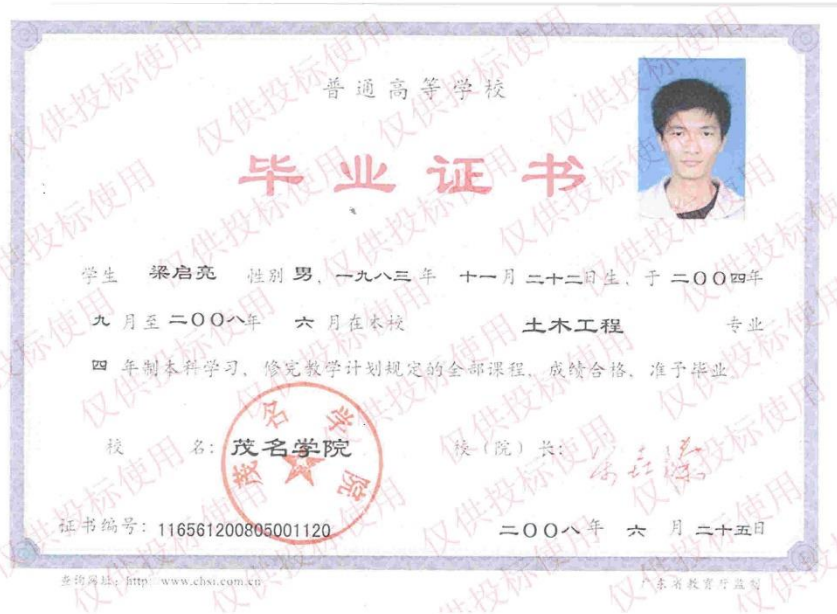 普通高等学校
毕业证书
学生 梁启亮 性别 男，一九八三年 十一月 二十二日生，于 二〇〇四年
九 月至 二〇〇八年 六 月在本校 土木工程 专业
四 年制本科学习，修完教学计划规定的全部课程，成绩合格，准予毕业。
校 名：茂名学院 校（院）长：
茂名学院
证书编号：116561200805001120 二〇〇八年 六 月 二十五日
查询网址：http：www.chsi.com.cn 广东省教育厅监制
仅供投标使用